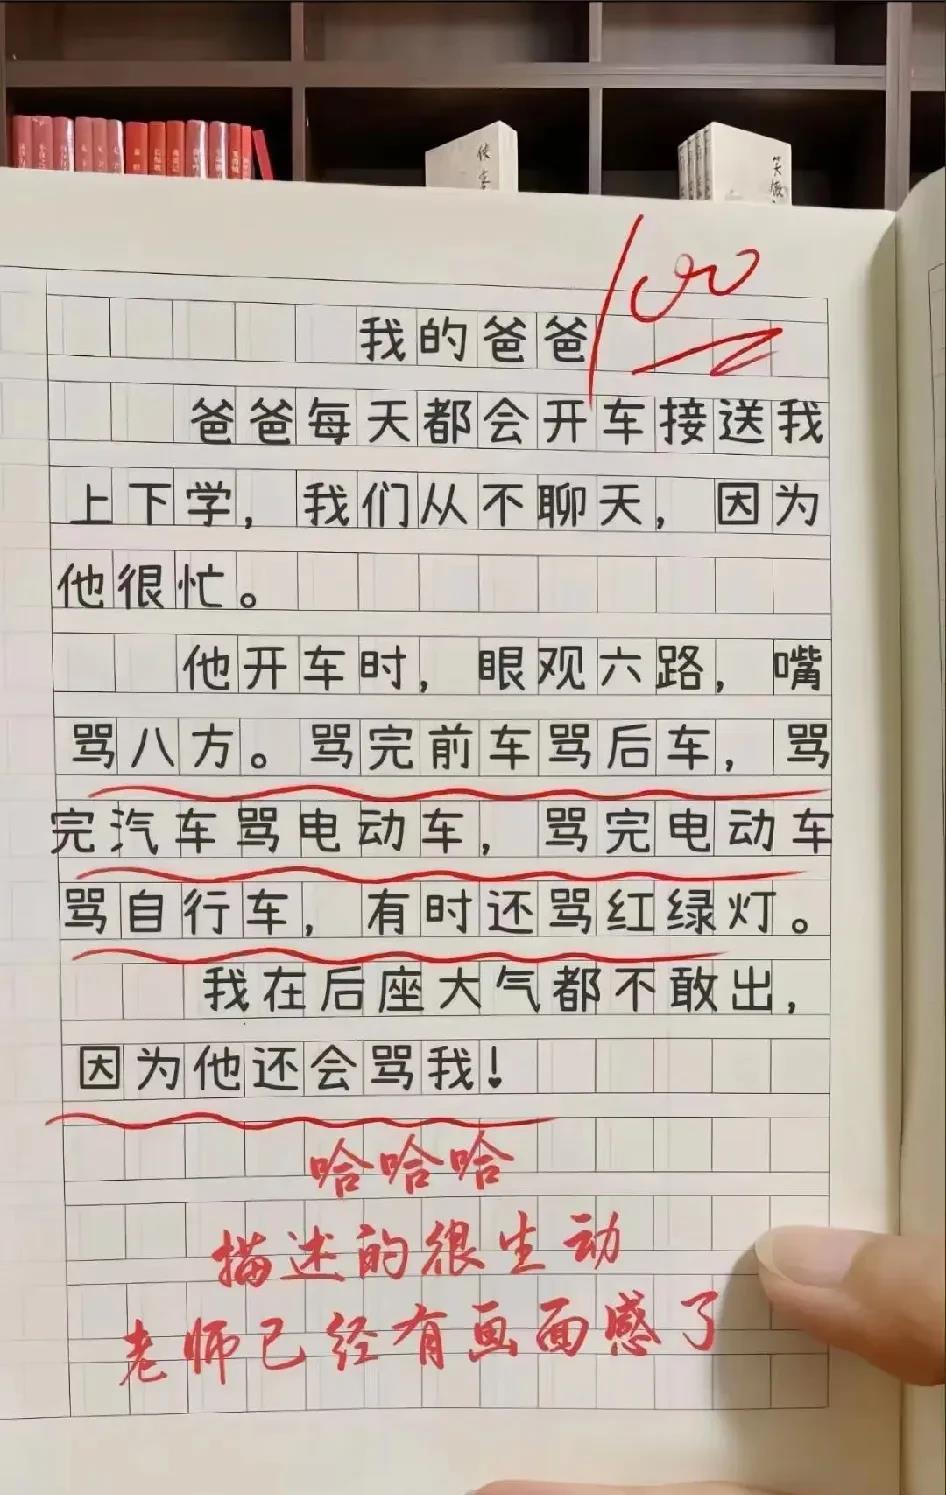 传奇
笑傲
100
我的爸爸
爸爸每天都会开车接送我
上下学，我们从不聊天，因为
他很忙。
他开车时，眼观六路，嘴
骂八方。骂完前车骂后车，骂
完汽车骂电动车，骂完电动车
骂自行车，有时还骂红绿灯。
我在后座大气都不敢出，
因为他还会骂我！
哈哈哈
描述的很生动
老师已经有画面感了